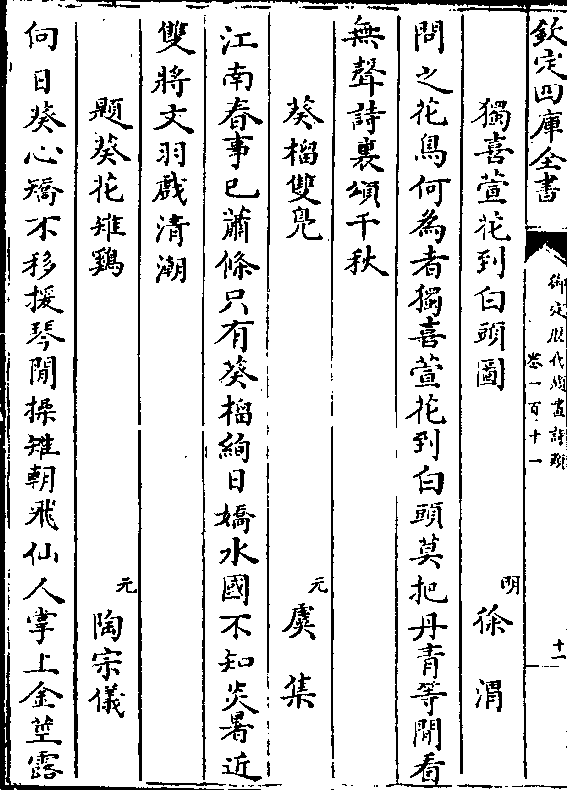 欽定四庫全書
御定歷代題畫詩類 卷一百十一
十一
獨喜萱花到白頭圖 明 徐渭
問之花鳥何為者獨喜萱花到白頭莫把丹青等閒看
無聲詩裏頌千秋
葵榴雙鳧 元 虞集
江南春事已蕭條只有葵榴絢日嬌水國不知炎暑近
雙將文羽戲清潮
題葵花雉鷄 元 陶宗儀
向日葵心矯不移援琴閒操雉朝飛仙人掌上金莖露